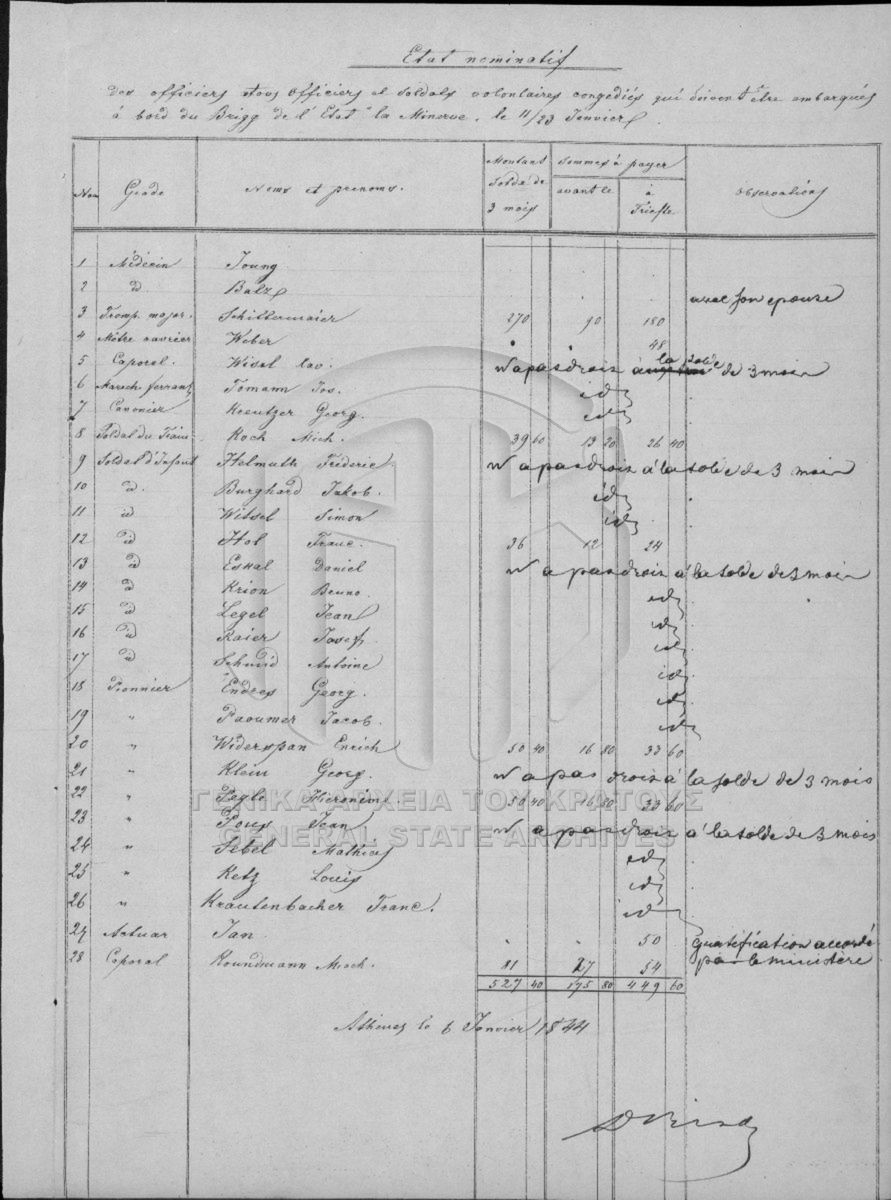 Etat nominatif
des officiers sous officiers et soldats volontaires congediés qui doivent être embarqués
à bord du Brigg de l'Etat "la Minerve. le 11/23 Janvier.
Nos Grade Noms et prenoms. Montant Solde de 3 mois Sommes à payer avant le à Trieste observations
1 Médecin Young
2 id Balz avec son epouse
3 Tromp. major. Schiltermaier 270 90 180
4 Mètre ouvrier Weber 48
5 Caporal. Wisel Cas. N'a pas droit à la solde de 3 mois
6 Marech. ferrant Tomann Jos. id
7 Canonier Kreutzer Georg. id
8 Soldat du Train Koch Mich. 39 60 13 20 26 40
9 Soldat d'Infant Helmuth Fréderic. N'a pas droit à la solde de 3 mois
10 id. Burghard Jakob. id
11 id Witsel Simon id
12 id Hol Franc. 36 12 24
13 id Eskal Daniel N'a pas droit à la solde de 3 mois
14 id Krion Bruno. id
15 id Legel Jean id
16 id Kaier Josef. id
17 id Schmid Antoine id
18 Pionnier Endres Georg. id
19 " Paoumer Jacob. id
20 " Widerspan Enrich 50 40 16 80 33 60
21 " Klein Georg. N'a pas droit à la solde de 3 mois
22 " Hieronim. 50 40 16 80 33 60
23 " Jean N'a pas droit à la solde de 3 mois
24 " Sebel Mathias id
25 " Retz Louis id
26 " Krautenbacher Franc. id
27 Actuar Jan. " " 50 gratification accordé
28 Caporal Roundmann Mich. 81 27 54 par le ministère
527 40 175 80 449 60
Athènes le 6 Janvier 1844
ΓΕΝΙΚΑ ΑΡΧΕΙΑ ΤΟΥ ΚΡΑΤΟΥΣ
GENERAL STATE ARCHIVES